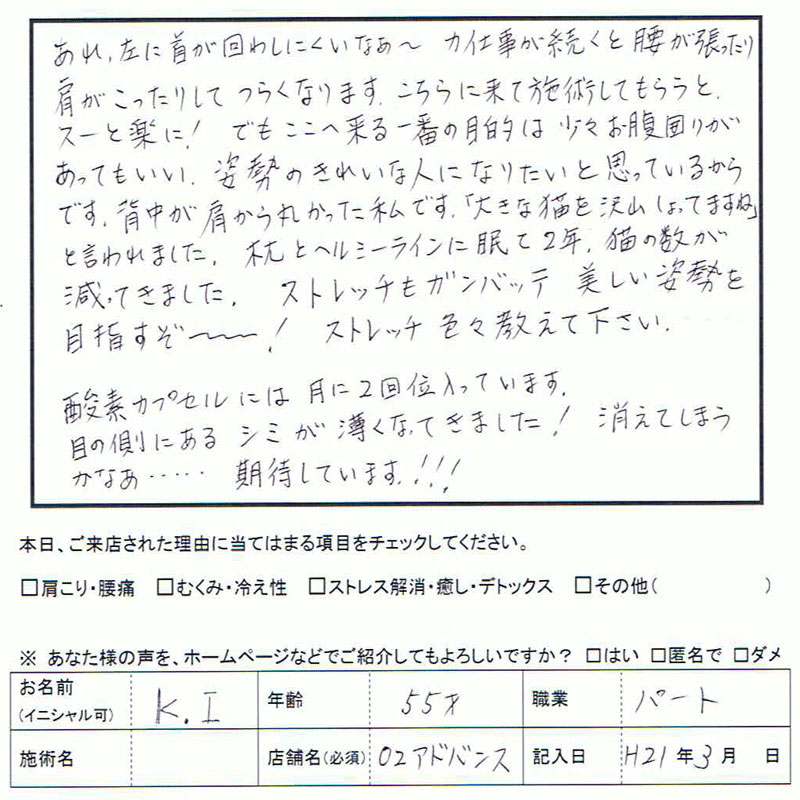 あれ,左に首が回わしにくいなぁ〜 力仕事が続くと腰が張ったり
肩がこったりしてつらくなります.こちらに来て施術してもらうと、
スーと楽に! でもここへ来る一番の目的は少々お腹回りが
あってもいい.姿勢のきれいな人になりたいと思っているから
です.背中が肩から丸かった私です.「大きな猫を沢山しょってますね」
と言われました.枕とヘルシーラインに眠て2年.猫の数が
減ってきました. ストレッチもガンバッテ 美しい姿勢を
目指すぞ〜〜〜! ストレッチ色々教えて下さい.
酸素カプセルには月に2回位入っています.
目の側にあるシミが薄くなってきました! 消えてしまう
かなぁ…… 期待しています.!!!
本日、ご来店された理由に当てはまる項目をチェックしてください。
□肩こり・腰痛 □むくみ・冷え性 □ストレス解消・癒し・デトックス □その他( )
※ あなた様の声を、ホームページなどでご紹介してもよろしいですか? □はい □匿名で □ダメ
お名前(イニシャル可) K.I 年齢 55才 職業 パート
施術名 店舗名(必須) O2アドバンス 記入日 H21年3月 日